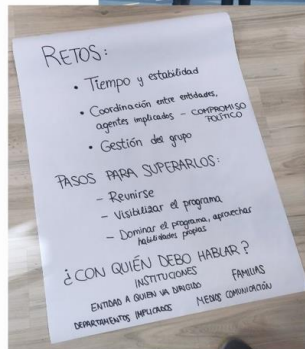 RETOS:
• Tiempo y estabilidad
• Coordinación entre entidades,
agentes implicados - COMPROMISO
POLÍTICO
• Gestión del grupo
PASOS PARA SUPERARLOS:
- Reunirse
- Visibilizar el programa
- Dominar el programa, aprovechar
habilidades propias
¿CON QUIÉN DEBO HABLAR?
INSTITUCIONES
FAMILIAS
ENTIDAD A QUIEN VA DIRIGIDO
MEDIOS COMUNICACIÓN
DEPARTAMENTOS IMPLICADOS